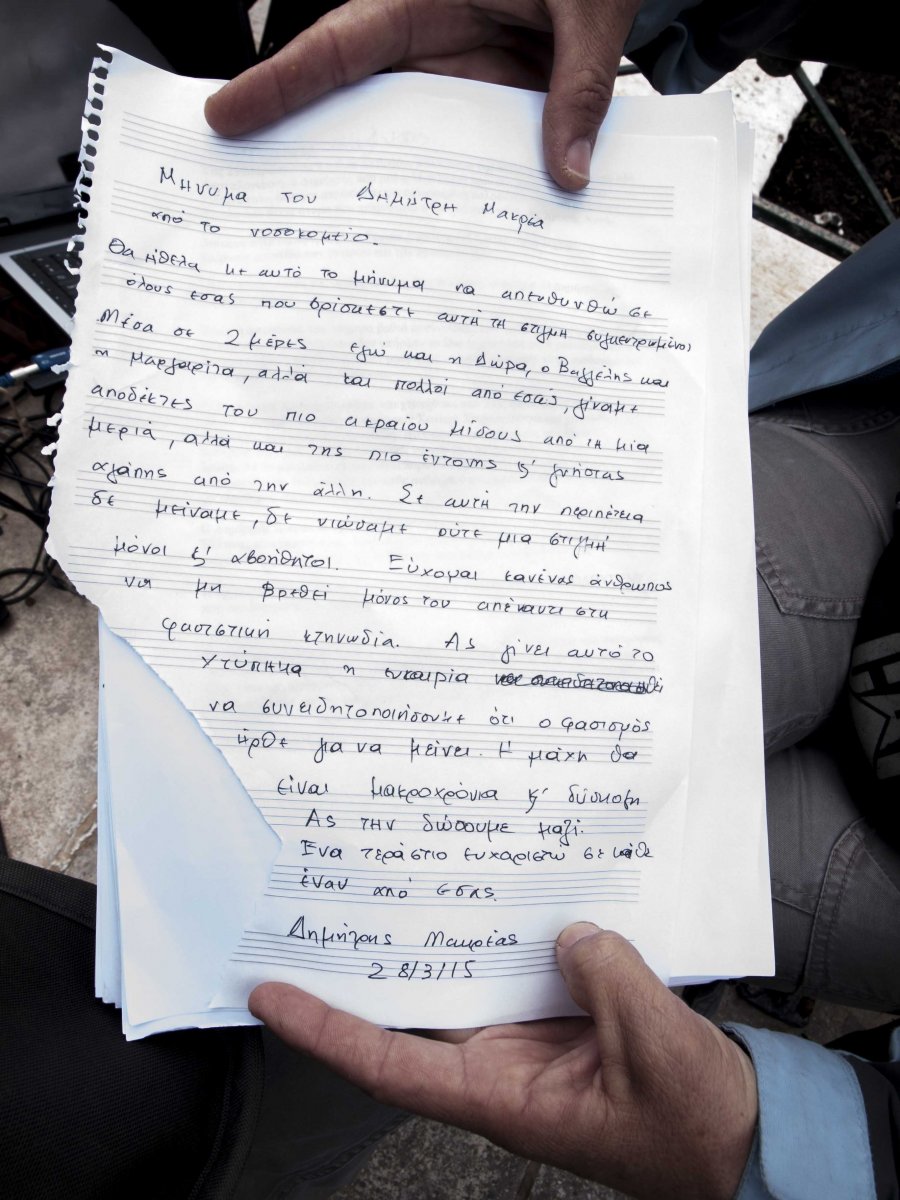 Μηνυμα του Δημήτρη Μακρία
από το νοσοκομείο.
Θα ήθελα με αυτό το μήνυμα να απευθυνθώ σε
όλους εσας που βρίσκεστε αυτή τη στιγμή συγκεντρωμένοι
Μέσα σε 2 μέρες εγώ και η Δώρα, ο Βαγγέλης και
η Μαργαρίτα, αλλά και πολλοί από εσάς, γίναμε
αποδέκτες του πιο ακραίου μίσους από τη μία
μεριά, αλλά και της πιο έντονης κ' γνήσιας
αγάπης από την άλλη. Σε αυτή την περιπέτεια
δε μείναμε, δε νιώσαμε ούτε μια στιγμή
μόνοι κ' αβοήθητοι. Εύχομαι κανένας άνθρωπος
να μη βρεθεί μόνος του απέναντι στη
φασιστική κτηνωδία. Ας γίνει αυτό το
χτύπημα η ευκαιρία
να συνειδητοποιήσουμε ότι ο φασισμός
ήρθε για να μείνει. Η μάχη θα
είναι μακροχρόνια κ' δύσκολη
Ας την δώσουμε μαζί.
Ένα τεράστιο ευχαριστώ σε κάθε
έναν από εσας.
Δημήτρης Μακρίας
28/3/15